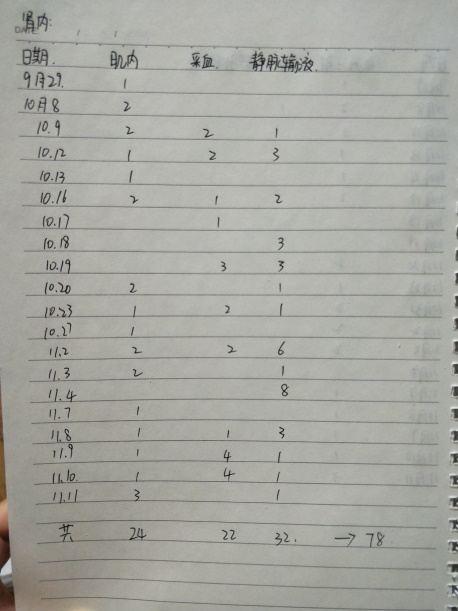 肾内:
日期. 肌内 采血. 静脉输液.
9月29. 1
10月8 2
10.9 2 2 1
10.12 1 2 3
10.13 1
10.16 2 1 2
10.17 1
10.18 3
10.19 3 3
10.20 2 1
10.23 1 2 1
10.27 1
11.2 2 2 6
11.3 2 1
11.4 8
11.7 1
11.8 1 1 3
11.9 1 4 1
11.10. 1 4 1
11.11 3 1
共 24 22 32. → 78